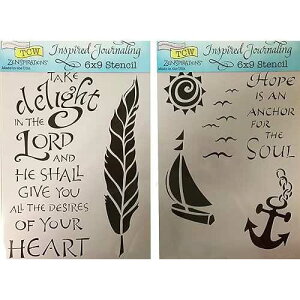 TCW
Inspired Journaling
ZENSPIRATIONS
6x9 Stencil
Made in the USA
TAKE
delight
IN THE
LORD AND
HE SHALL
GIVE YOU
ALL THE DESIRES
OF YOUR
HEART
TCW
Inspired Journaling
ZENSPIRATIONS
6x9 Stencil
Made in the USA
HOPE
IS AN
ANCHOR
FOR THE
SOUL